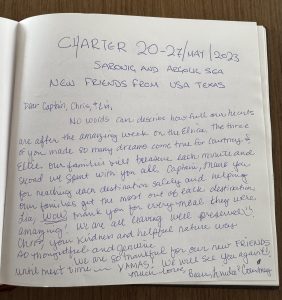 CHARTER 20-27/MAY/2023
SARONIC AND ARGOLIC SEA
NEW FRIENDS FROM USA TEXAS
Dear Captain, Chris, & Lia,
No words can describe how full our hearts
are after the amazing week on the Ellice. The three
of you made so many dreams come true for Courtney &
Ellie. Our families will treasure each minute and
second we spent with you all. Captain, thank you
for reaching each destination safely and helping
our families get the most out of each destination.
Lia, WOW! thank you for every meal they were
amazing! We are all leaving well preserved!!
Chris, your kindness and helpful nature was
so thoughtful and genuine.
We are so thankful for our new FRIENDS
until next time in YAMAS! We will see you again!
Much love, Courtney